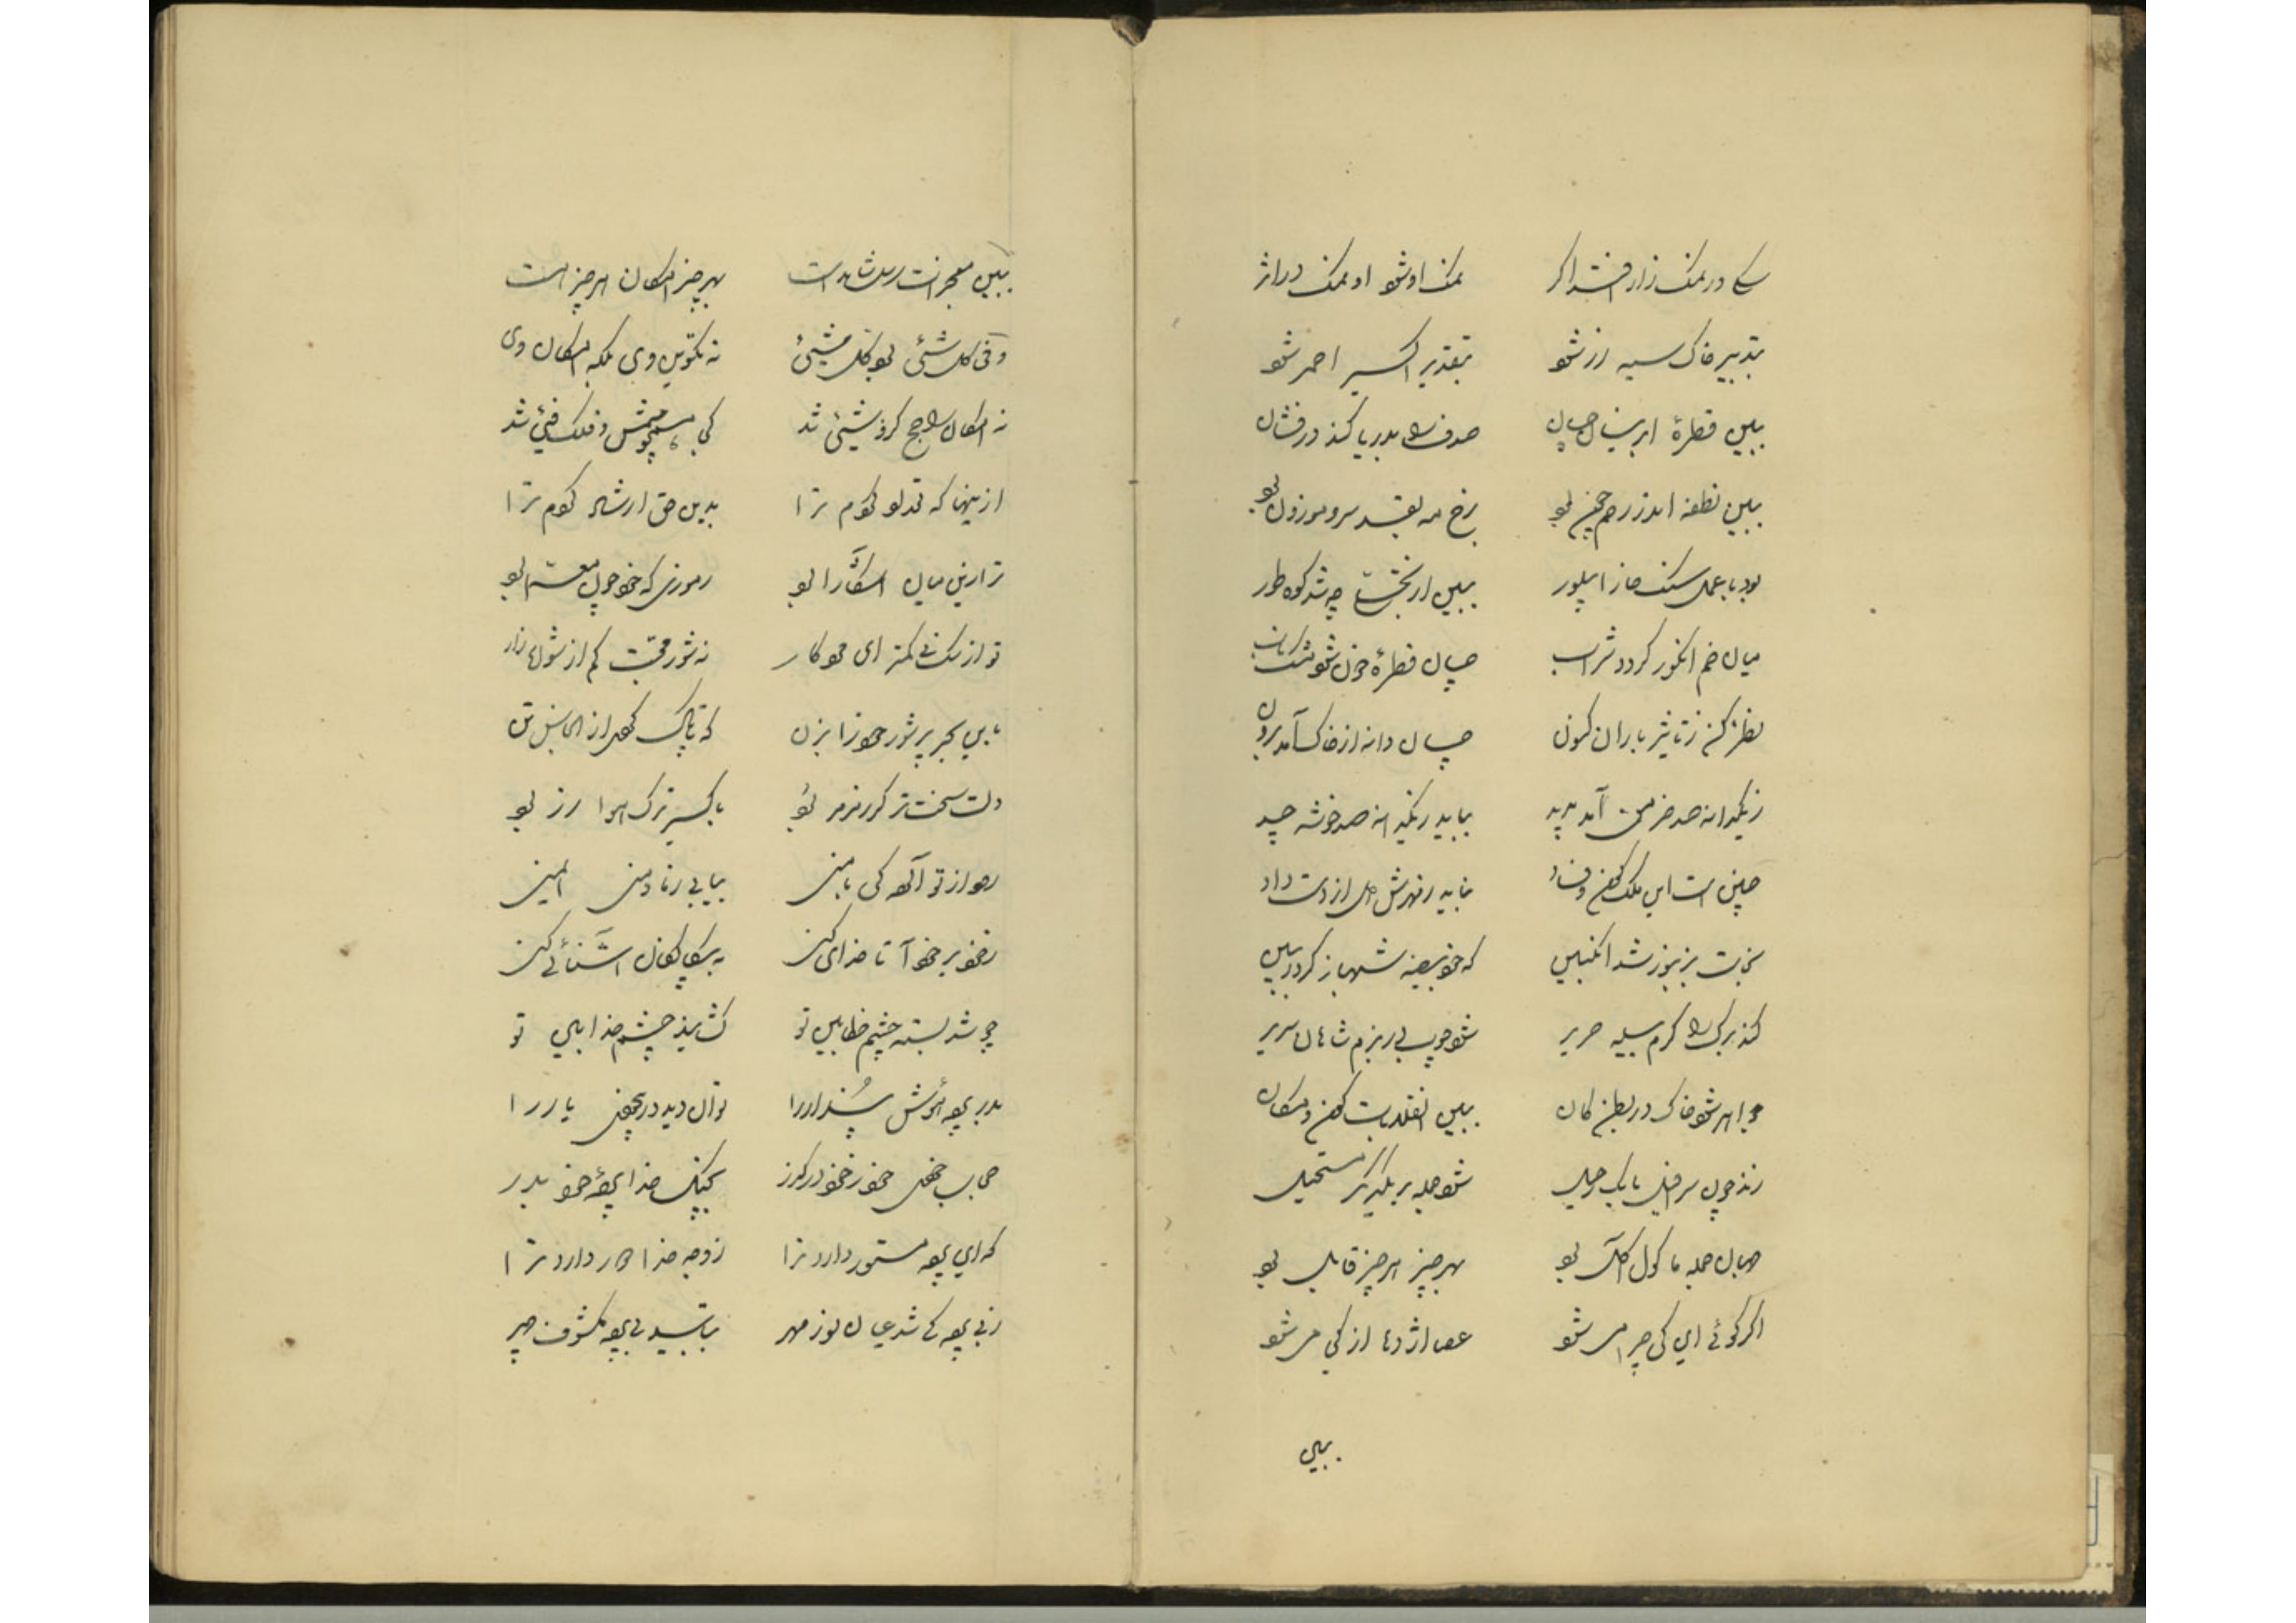 سگی در نمکزار افتد اگر نمک او شود او نمک در اثر
بتدبیر خاک سیه زر شود بتقدیر اکسیر احمر شود
ببین قطرهٔ ابر نیسان چسان صدف را بدریا کند درفشان
ببین نطفه اندر رحم چون بود رخ مه بقد سرو موزون بود
بود با عمل سنگ خارا بلور ببین از تجلی چه شد کوه طور
میان خم انگور گردد شراب چسان قطرهٔ خون شود مشک ناب
نظر کن ز تاثیر باران کنون چسان دانه از خاک آمد برون
ز یکدانه صد خرمن آمد پدید بباید ز یکدانه صد خوشه چید
چنین است این ملک کون و فساد نباید ز بهرش دل از دست داد
ز زنبور شد انگبین که خود بیضه شهباز گردد ببین
کند برگ را کرم پیله حریر شود چوب بی بزم شاهان سریر
جواهر شود خاک در بطن کان ببین انقلابات کون و مکان
زند چون سرافیل بانگ رحیل شود جمله بر یکدگر مستحیل
جهان جمله ماکول آکل بود بهر چیز هر چیز قابل بود
اگر گوئی این کی چرا می شود عصا اژدها از کی می شود
ببین
ببین معجز انبیا شاهد است بهر چیز امکان هر چیز هست
وفی کل شئ بود کل شئ نه تکوین وی بلکه امکان وی
نه امکان را جح کزو شیئی شد کی شمس و فلک فیئی شد
از اینها که قدلو کوم ترا بدین حق ارشاد کوم ترا
ترا زین میان آشکارا بود رموزی که خود چون معما بود
تو از سگ نی کمتر ای هوکار نه شور محبت کم از شوره زار
باین بحر پر شور خود را بزن که پاک از الایش تن
دلت سخت تر گر ز مرمر بود باکسیر ترک هوا زر بود
رود از تو آنگه کی با منی بیابی
ز خود بر خود آ تا خدائی کنی آشنائی کنی
چو شد بسته چشم خطابین تو گشایند چشم خدابین تو
بدر پردهٔ پندار را توان دید در خویش یار را
حجاب خودی خود ز خود در گذر بچنگ خدا پردهٔ خود بدر
که این پرده مستور دارد ترا ز وجه خدا دور دارد ترا
ز بی پرده گی شد عیان نور مهر نباشد پرده مکشوف چهر